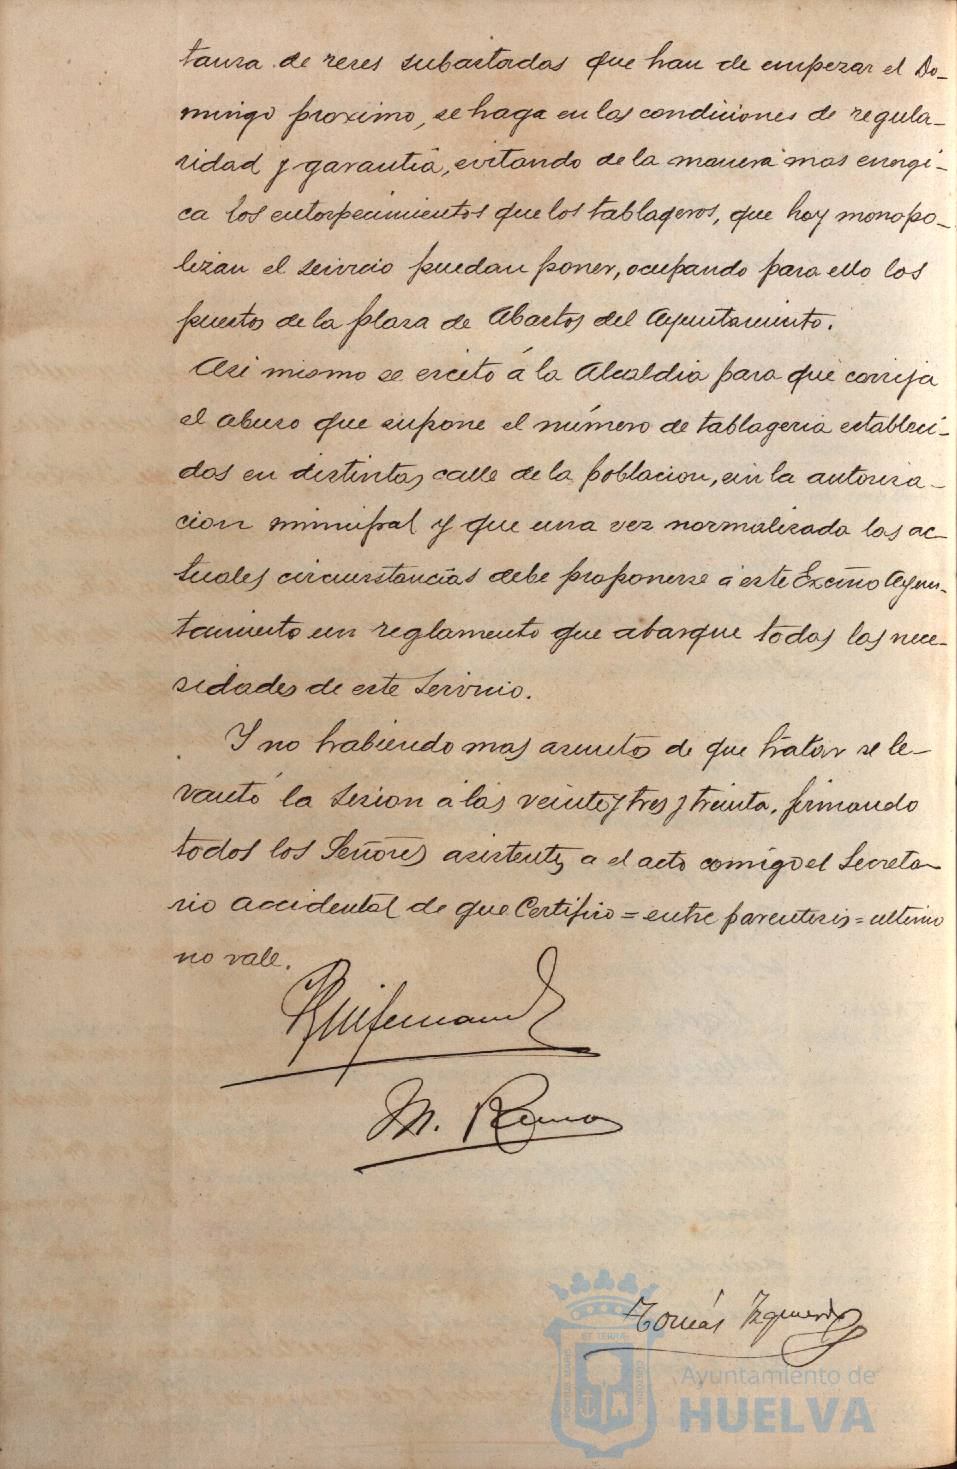 tanza de reses subastadas que han de empezar el Do-
mingo proximo, se haga en las condiciones de regula-
ridad y garantia, evitando de la manera mas energi-
ca los entorpecimientos que los tablageros, que hoy monopo-
lizan el servicio puedan poner, ocupando para ello los
puestos de la plaza de Abastos del Ayuntamiento.
Asi mismo se excitó á la Alcaldia para que corrija
el abuso que supone el número de tablageria estableci-
das en distintas calle de la poblacion, sin la autoriza-
cion municipal y que una vez normalizada las ac-
tuales circunstancias debe proponerse a este Excmo Ayun-
tamiento un reglamento que abarque todas las nece-
sidades de este Servicio.
Y no habiendo mas asuntos de que tratar se le-
vantó la Sesion a las veinte y tres y treinta, firmando
todos los Señores asistentes a el acto comigo el Secreta-
rio accidental de que Certifico = entre parentesis = ultimo
no vale.
M. Ramos
Tomás Izquierdo
ET TERRAE
CUSTODIA
PORTUS MARIS
Ayuntamiento de
HUELVA